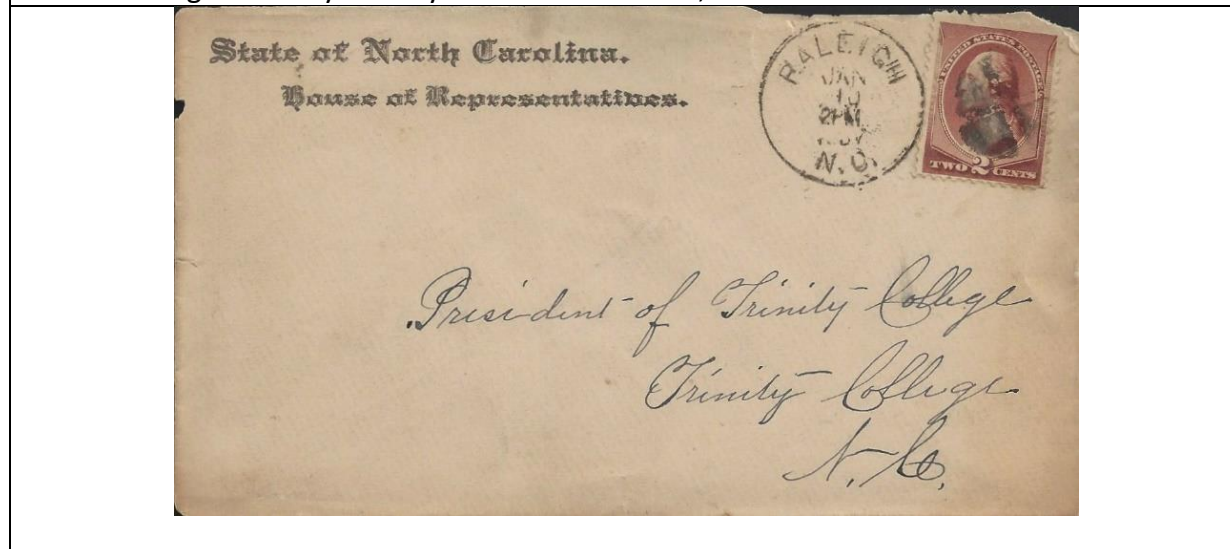 State of North Carolina.
House of Representatives.
RALEIGH
JAN
10
2PM
N.C.
UNITED STATES POSTAGE
TWO 2 CENTS
President of Trinity College
Trinity College
N.C.